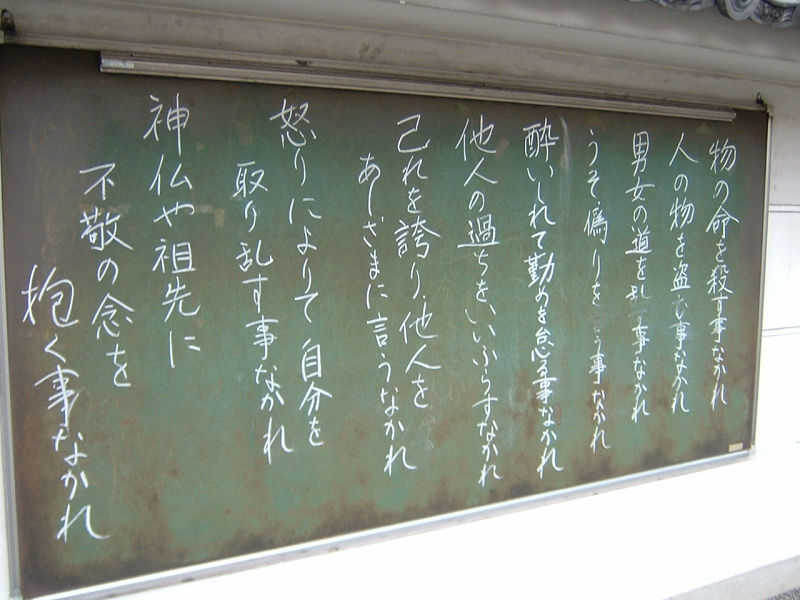 物の命を殺す事なかれ
人の物を盗む事なかれ
男女の道を乱す事なかれ
うそ偽りを言う事なかれ
酔いしれて勤めを怠る事なかれ
他人の過ちをいいふらすなかれ
己れを誇り、他人を
あしざまに言うなかれ
怒りによりて自分を
取り乱す事なかれ
神仏や祖先に
不敬の念を
抱く事なかれ